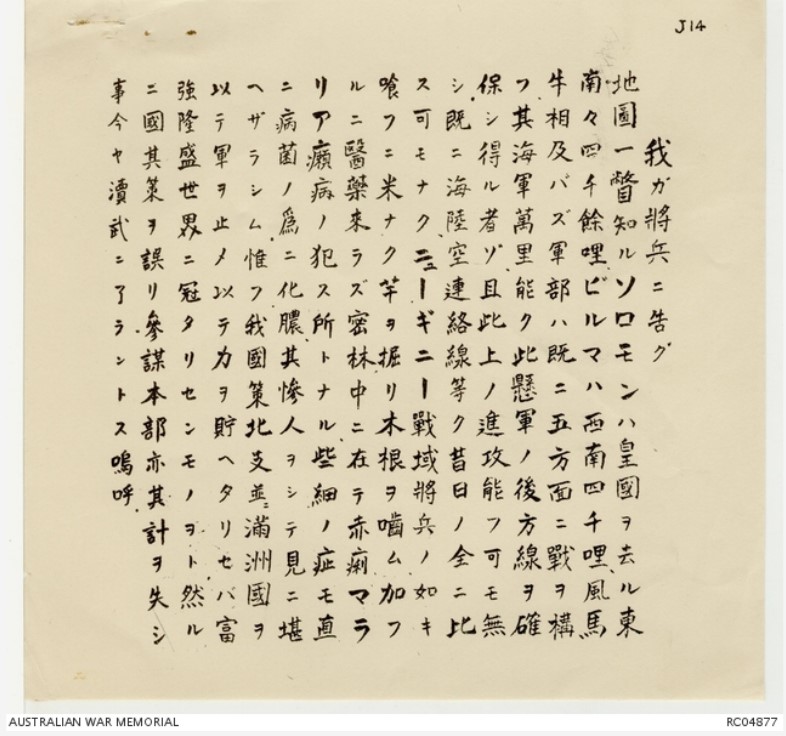 J14
我ガ將兵ニ告グ
地圖一瞥知ルソロモンハ皇國ヲ去ル東
南々四千餘哩ビルマハ西南四千哩、風馬
牛相及バズ軍部ハ既ニ五方面ニ戰ヲ構
フ、其海軍萬里能ク此懸軍ノ後方線ヲ確
保シ得ル者ゾ、且此上ノ進攻能フ可モ無
シ、既ニ海陸空連絡線等ク昔日ノ全ニ比
ス可モナクニューギニー戰域將兵ノ如キ
喰フニ米ナク芋ヲ掘リ木根ヲ嚙ム、加フ
ルニ醫藥来ラズ密林中ニ在テ赤痢マラ
リア癩病ノ犯ス所トナル、些細ノ症モ直
ニ病菌ノ爲ニ化膿、其慘人ヲシテ見ニ堪
ヘザラシム、惟フ、我國策北支並ニ滿洲國ヲ
以テ軍ヲ止メ以テ力ヲ貯ヘタリセバ富
強隆盛世界ニ冠タリセンモノヲト、然ル
ニ國其策ヲ誤リ、參謀本部亦其計ヲ失シ
事今ヤ瀆武ニ了ラントス嗚呼、
AUSTRALIAN WAR MEMORIAL
RC04877